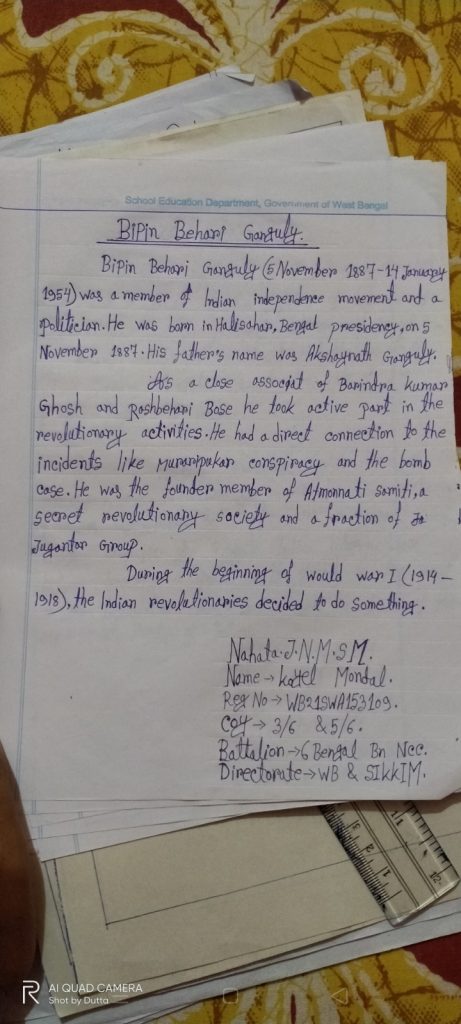 School Education Department, Government of West Bengal
Bipin Behari Ganguly.
Bipin Behari Ganguly (5 November 1887-14 January
1954) was a member of Indian independence movement and a
politician. He was born in Halisahar, Bengal presidency, on 5
November 1887. His father's name was Akshaynath Ganguly.
As a close associat of Barindra kumar
Ghosh and Rashbehari Bose he took active part in the
revolutionary activities. He had a direct connection to the
incidents like Muraripukar conspiracy and the bomb
case. He was the founder member of Atmonnati samiti, a
secret revolutionary society and a fraction of Ja
Jugantar Group.
During the beginning of would war I (1914-
1918), the Indian revolutionaries decided to do something.
Nahata. J.N.M.S M.
Name → Kayel Mondal.
Reg No → WB21SWA153109.
Coy → 3/6 & 5/6.
Battalion → 6 Bengal Bn Ncc.
Directorate → WB & SIKKIM.
R AI QUAD CAMERA
Shot by Dutta